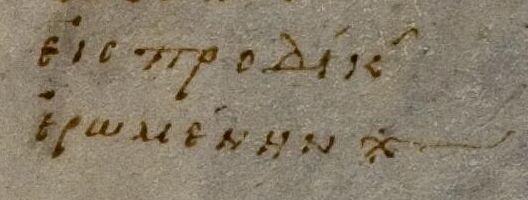 εἰς προδίκ
ἐρωμένην